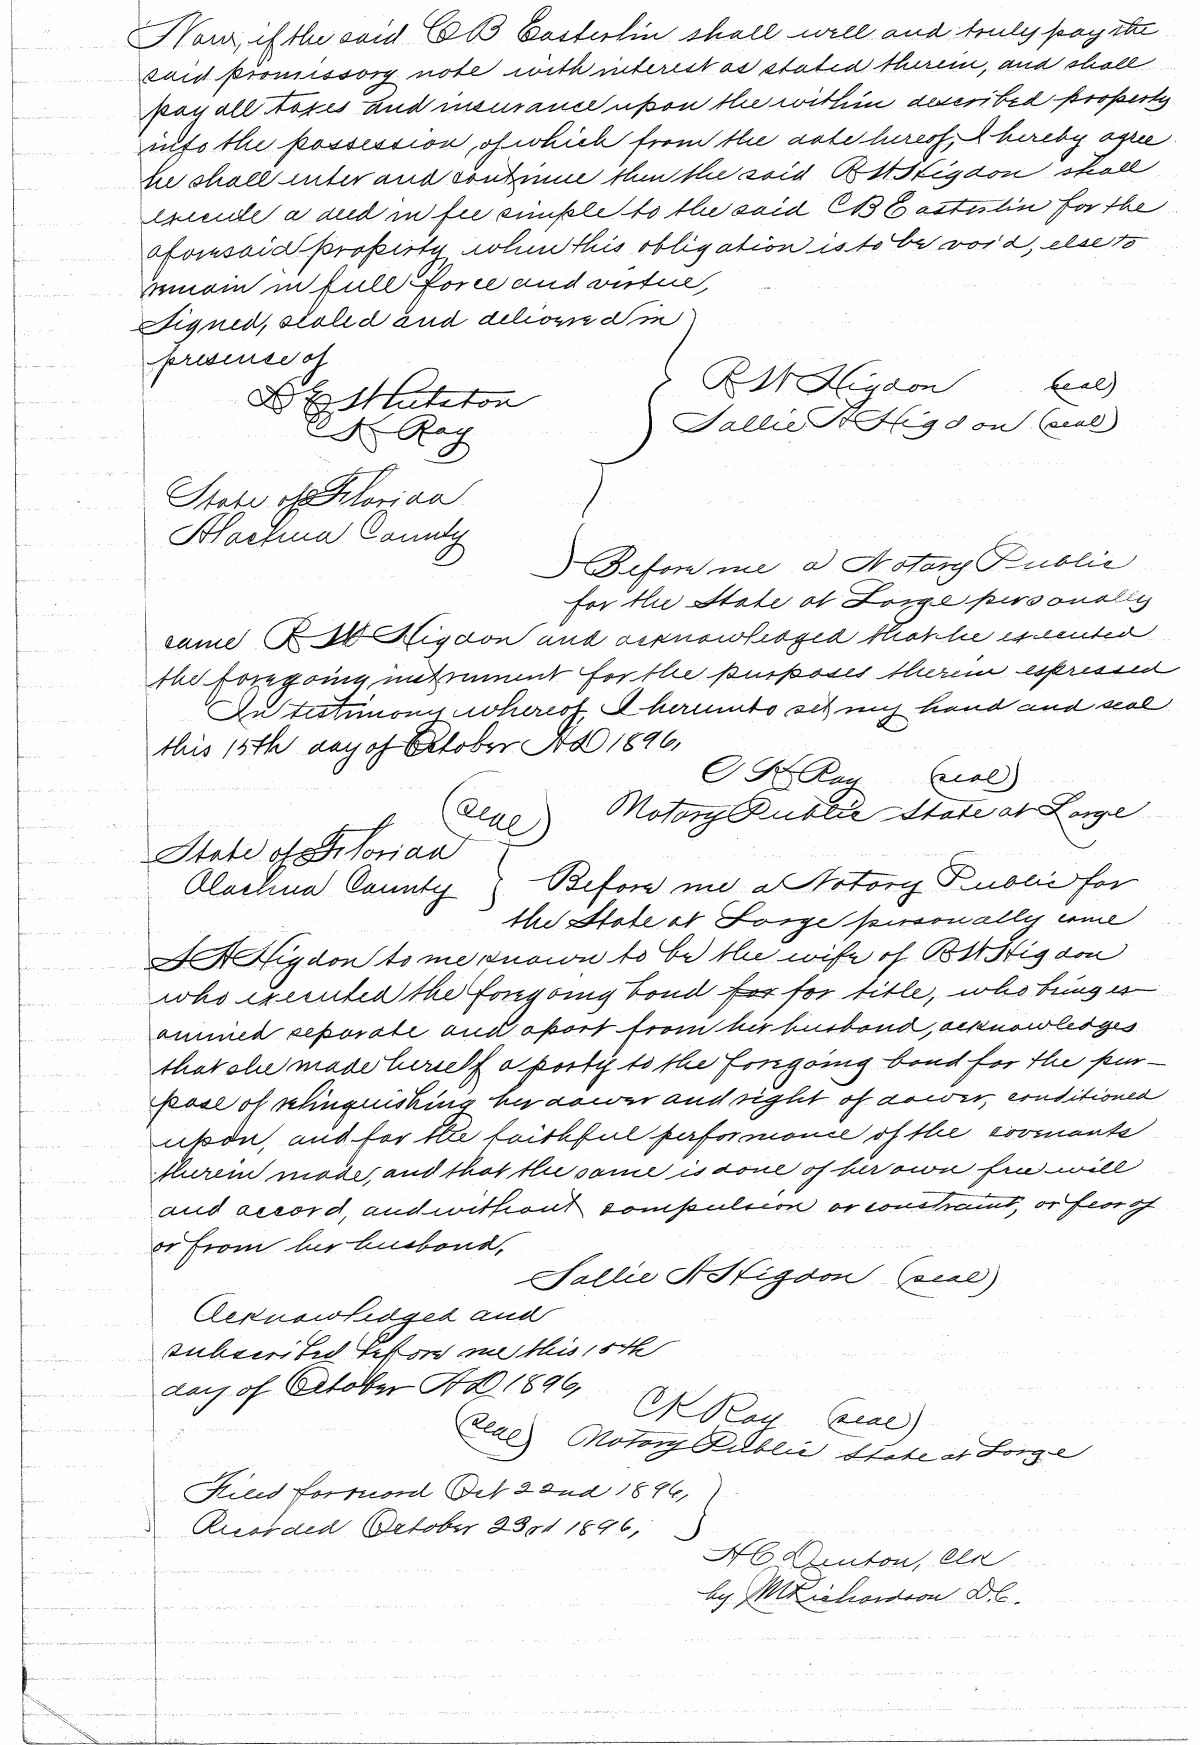 Now, if the said C B Easterlin shall well and truly pay the
said promissory note with interest as stated therein, and shall
pay all taxes and insurance upon the within described property
into the possession, of which from the date hereof, I hereby agree
he shall enter and continue then the said R W Higdon shall
execute a deed in fee simple to the said C B Easterlin for the
aforesaid property, when this obligation is to be void, else to
remain in full force and virtue,
Signed, sealed and delivered in
presence of
R W Higdon (seal)
D E Whetston
Sallie A Higdon (seal)
C K Ray
State of Florida
Alachua County
Before me a Notary Public
for the State at Large personally
came R W Higdon and acknowledged that he executed
the foregoing instrument for the purposes therein expressed
In testimony whereof, I hereunto set my hand and seal
this 15th day of October A D 1896,
C K Ray (seal)
(seal) Notary Public State at Large
State of Florida
Alachua County } Before me a Notary Public for
the State at Large personally came
S A Higdon to me known to be the wife of R W Higdon
who executed the foregoing bond for for title, who being ex
amined separate and apart from her husband, acknowledges
that she made herself a party to the foregoing bond for the pur-
pose of relinquishing her dower and right of dower, conditioned
upon, and for the faithful performance of the covenants
therein made, and that the same is done of her own free will
and accord, and without compulsion or constraint, or fear of
or from her husband,
Sallie A Higdon (seal)
Acknowledged and
subscribed before me this 15th
day of October A D 1896,
C K Ray (seal)
(seal) Notary Public State at Large
Filed for record Oct 22nd 1896,
Recorded October 23rd 1896,
H C Denton, Clk
by M Richardson D.C.